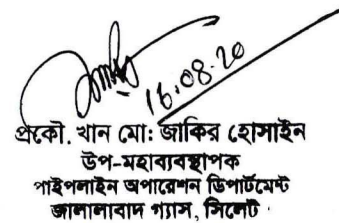 16.08.20
প্রকৌ. খান মো: জাকির হোসাইন
উপ-মহাব্যবস্থাপক
পাইপলাইন অপারেশন ডিপার্টমেন্ট
জালালাবাদ গ্যাস, সিলেট